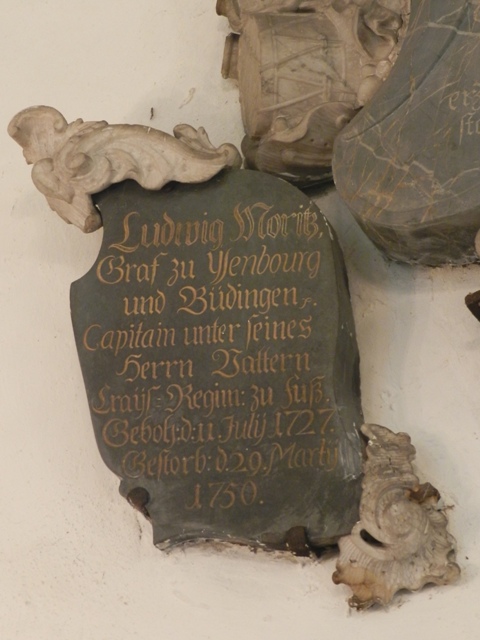 Ludwig Moritz,
Graf zu Ysenbourg
und Büdingen
Capitain unter seines
Herrn Vattern
Crays-Regim: zu fuß.
Gebohr:d:11 July 1727.
Gestorb: d:29. Marty
1750.